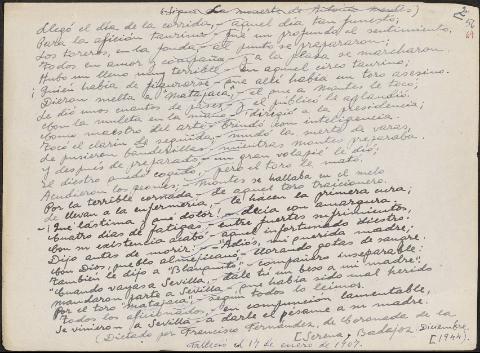 (Sigue La muerte de Antonio Montes)
Llegó el día de la corrida, - aquel día tan funesto;
Para la afición taurina - fué un profundo el sentimiento.
Los toreros, en la fonda, - al punto se prepararon;
Todos en amor y compaña - a la plaza se marcharon.
Hubo un lleno muy terrible - en aquel circo taurino;
¡Quién había de figurarse - que allí había un toro asesino.
Dieron suelta a "Matajaca", - el que a Montes le tocó;
Le dió unos cuantos de pases - y el público le aplaudió.
Con la muleta en la mano - dirigió a la presidencia;
Como maestro del arte - brindó con inteligencia.
Tocó el clarín En seguida, - mudó la suerte de varas,
Le pusieron banderillas, - mientras Montes preparaba.
Y después de preparado, - un gran volapié le dió;
El diestro quedó cogido, - pero el toro le mató.
Acudieron los peones; - Montes se hallaba en el suelo
Por la terrible cornada - de aquel toro traicionero.
Le llevan a la enfermería, - le hacen la primera cura;
- ¡Qué lástima y qué dolor! - decía con amargura.
Cuatro días de fatigas, - entre fuertes sufrimientos,
Con su existencia acabó - aquel infortunado diestro.
Dijo antes de morir: - "Adiós, mi querida madre;
Con Dios, pueblo almejicano", - llorando gotas de sangre.
También le dijo a "Blanquito", - compañero inseparable:
"Cuando vayas a Sevilla, - dale tú un beso a mi madre".
Mandaron parte a Sevilla - que había sido mal herido
Por el toro "Matajaca", - según todos lo leímos.
Todos los aficionados, - en compunción lamentable,
Se vinieron a Sevilla - a darle el pésame a su madre.
(Dictado por Francisco Fernández, de Coronada de la
Falleció el 17 de enero de 1907. [Serena, Badajoz Diciembre
[1944).
56
69